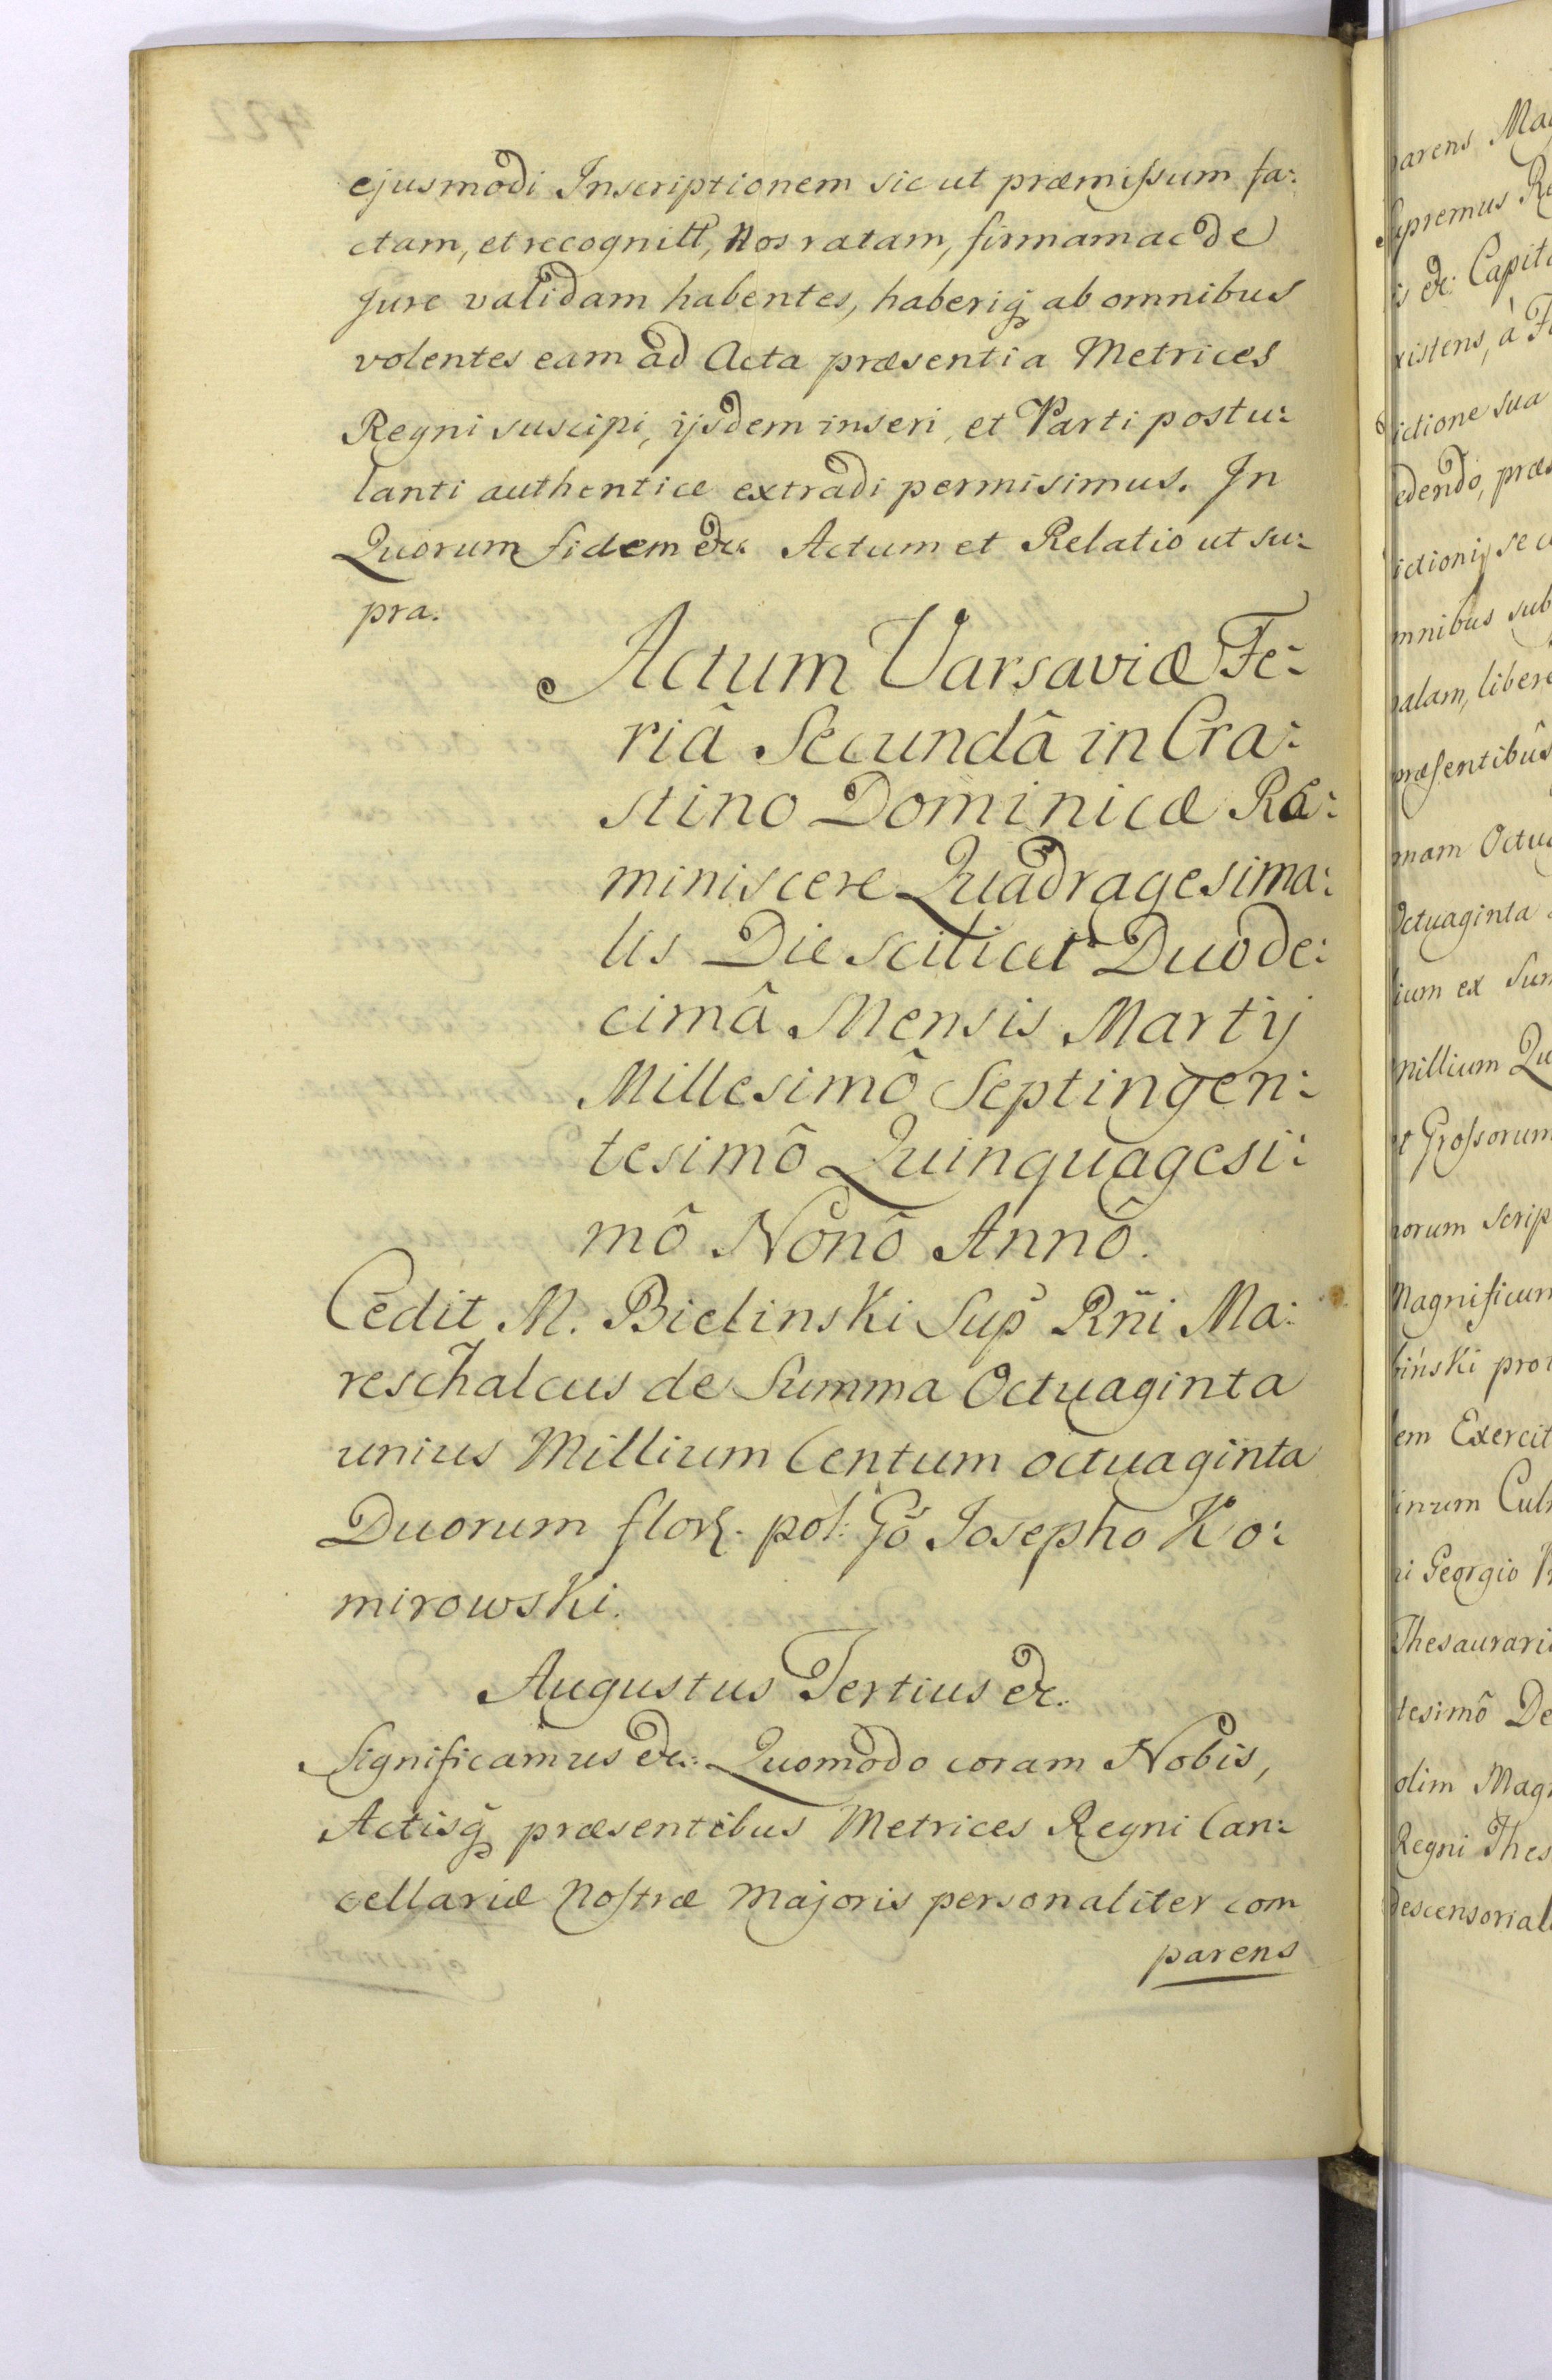 ejusmodi Inscriptionem sic ut præmissum fa:
ctam, et recognitt, Nos ratam, firmam ac de
Jure validam habentes, haberiq́ ab omnibus
volentes eam ad Acta præsentia Metrices
Regni suscipi, ijsdem inseri, et Parti postu:
lanti authentice extradi permisimus. In
Quorum fidem &c. Actum et Relatio ut su:
pra.
Actum Varsaviæ Fe:
riâ Secundâ in Cra:
stino Dominicæ Re:
miniscere Quadragesima:
lis Die scilicet Duode:
cimâ Mensis Martij
Millesimô Septingen:
tesimô Quinquagesi:
mô Nonô Annô.
Cedit M. Bielinski Sup̃ Rñi Ma:
reschalcus de Summa Octuaginta
unius Millium Centum octuaginta
Duorum floꝝ. pol: Gõ Josepho Ko:
mirowski.
Augustus Tertius &c.
Significamus &c: Quomodo coram Nobis,
Actisq́ præsentibus Metrices Regni Can:
cellariæ Nostræ Majoris personaliter com
parens
parens
Supremus
&c: Capit
existens, à
dictione sua
edendo, præs
se
omnibus sub
palam, libere
præsentibûs
mam Octu
Octuaginta
ex Sum
millium Qu
et Grossorum
scrip
Magnificum
bński pro
em Exercit
Cul
Georgio
Thesaurari
tesimô De
olim Mag
Regni Thes
descensorial